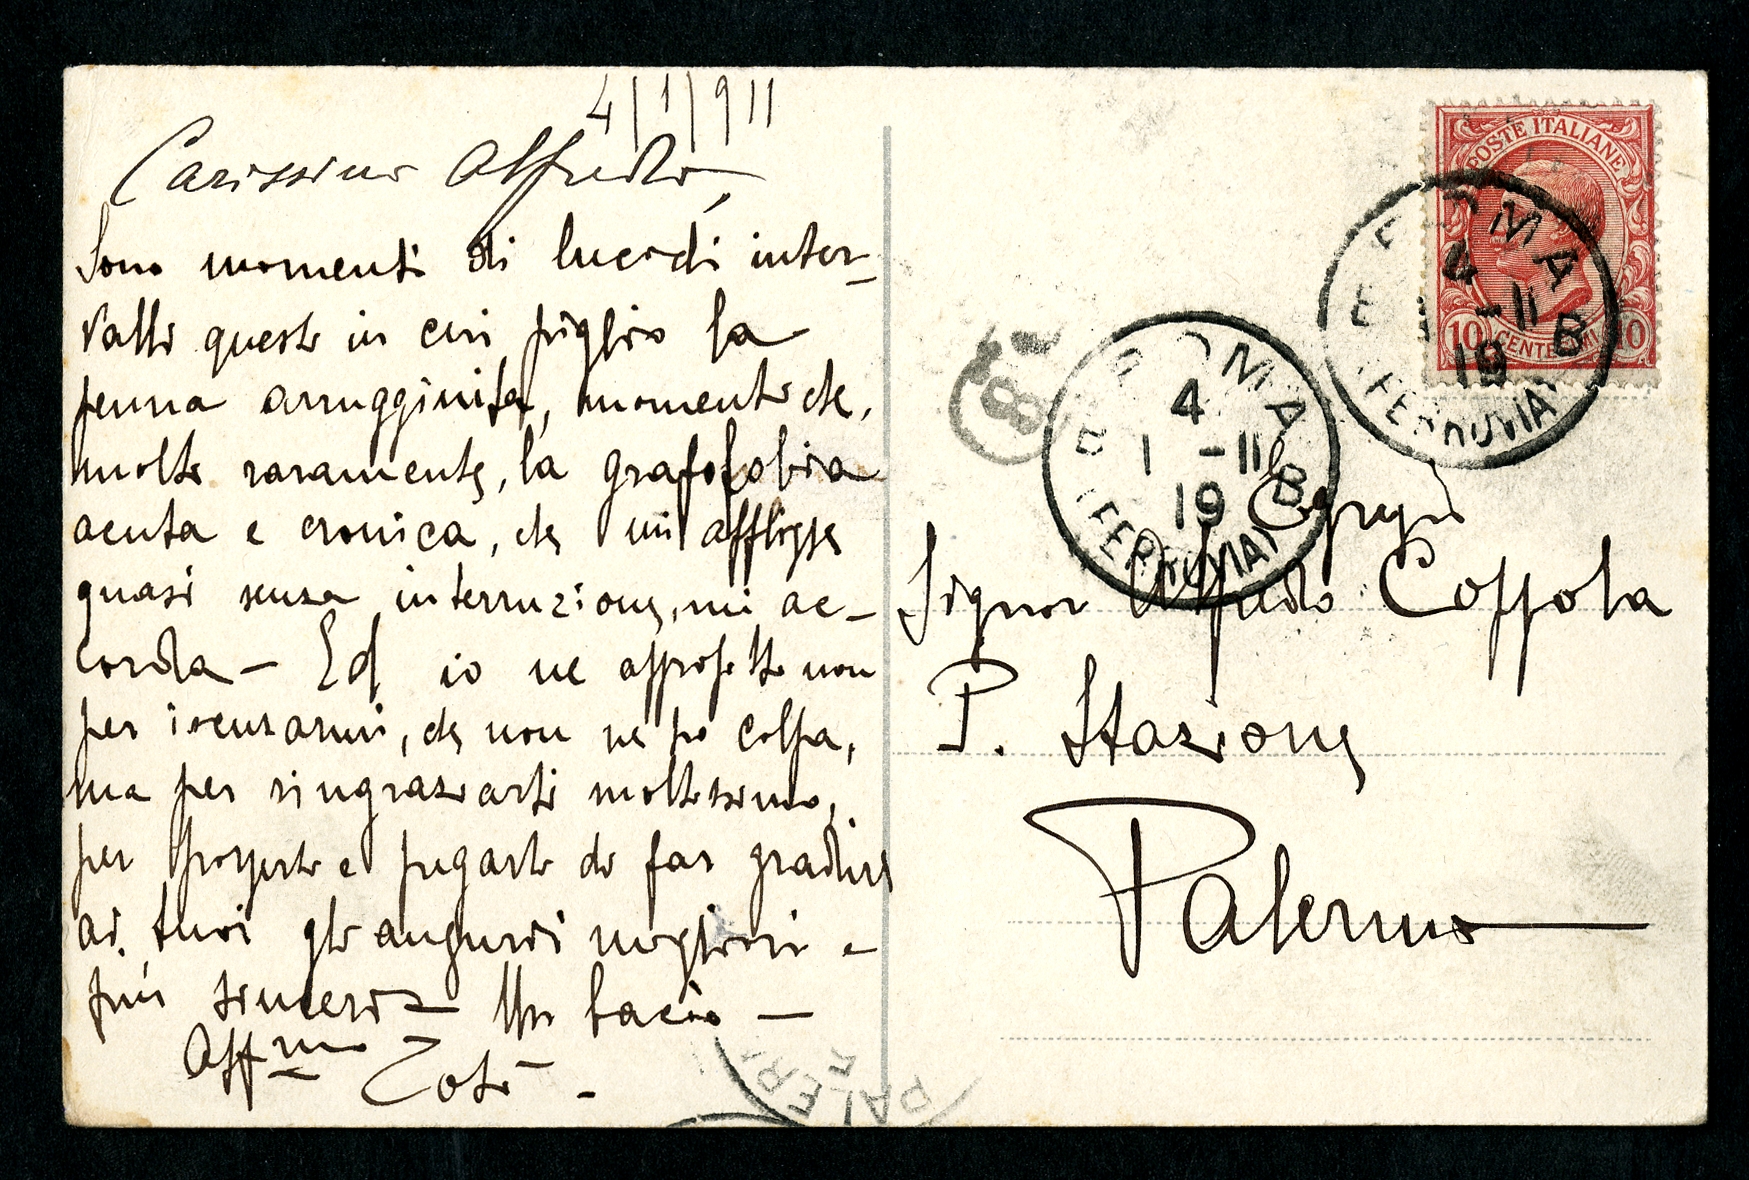 4/1/911
Carissimo Alfredo,
Sono momenti di lucidi inter-
valli questi in cui piglio la
penna arrugginita, momenti che,
molto raramente, la grafofobia
acuta e cronica, che mi affligge
quasi senza interruzione, mi ac-
corda - Ed io ne approfitto non
per iscusarmi, che non ne ho colpa,
ma per ringraziarti moltissimo,
per porgerti e pregarti di far gradire
ai tuoi gli auguri migliori e
più sinceri - Un bacio -
Affmo
Totò -
POSTE ITALIANE
10 CENTESIMI 10
ROMA
4
1 - 11
19 B
(FERROVIA)
ROMA
4
1 - 11
19 B
(FERROVIA)
84
Egregio
Signor Alfredo Coppola
P. Stazione
Palermo
PALER